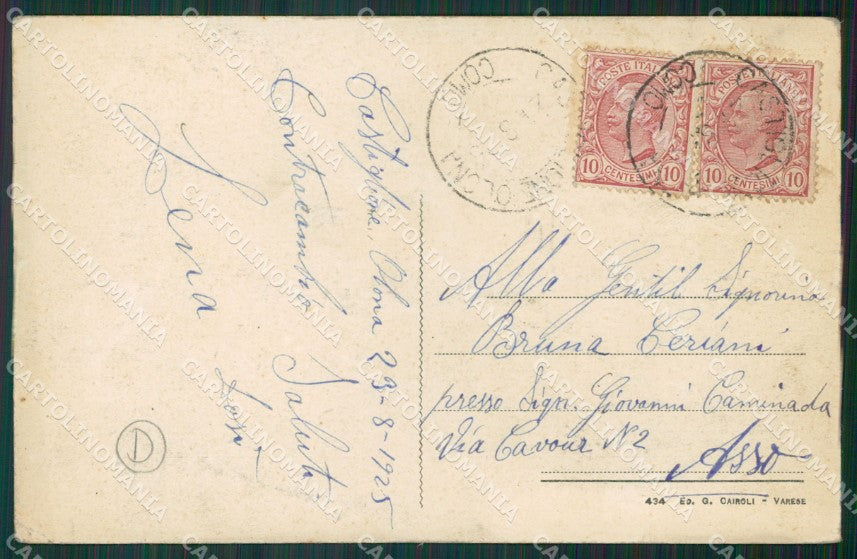 Castiglione Olona 23-8-1925
Contracambio Saluti.
Lena
POSTE ITALIANE
10 CENTESIMI 10
10 CENTESIMI 10
CASTIGLIONE OLONA
COMO
Alla Gentil Signorina
Bruna Ceriani
presso Sign. Giovanni Caminada
Via Cavour N 2
Asso
434 ED. G. CAIROLI - VARESE
D
CARTOLINOMANIA